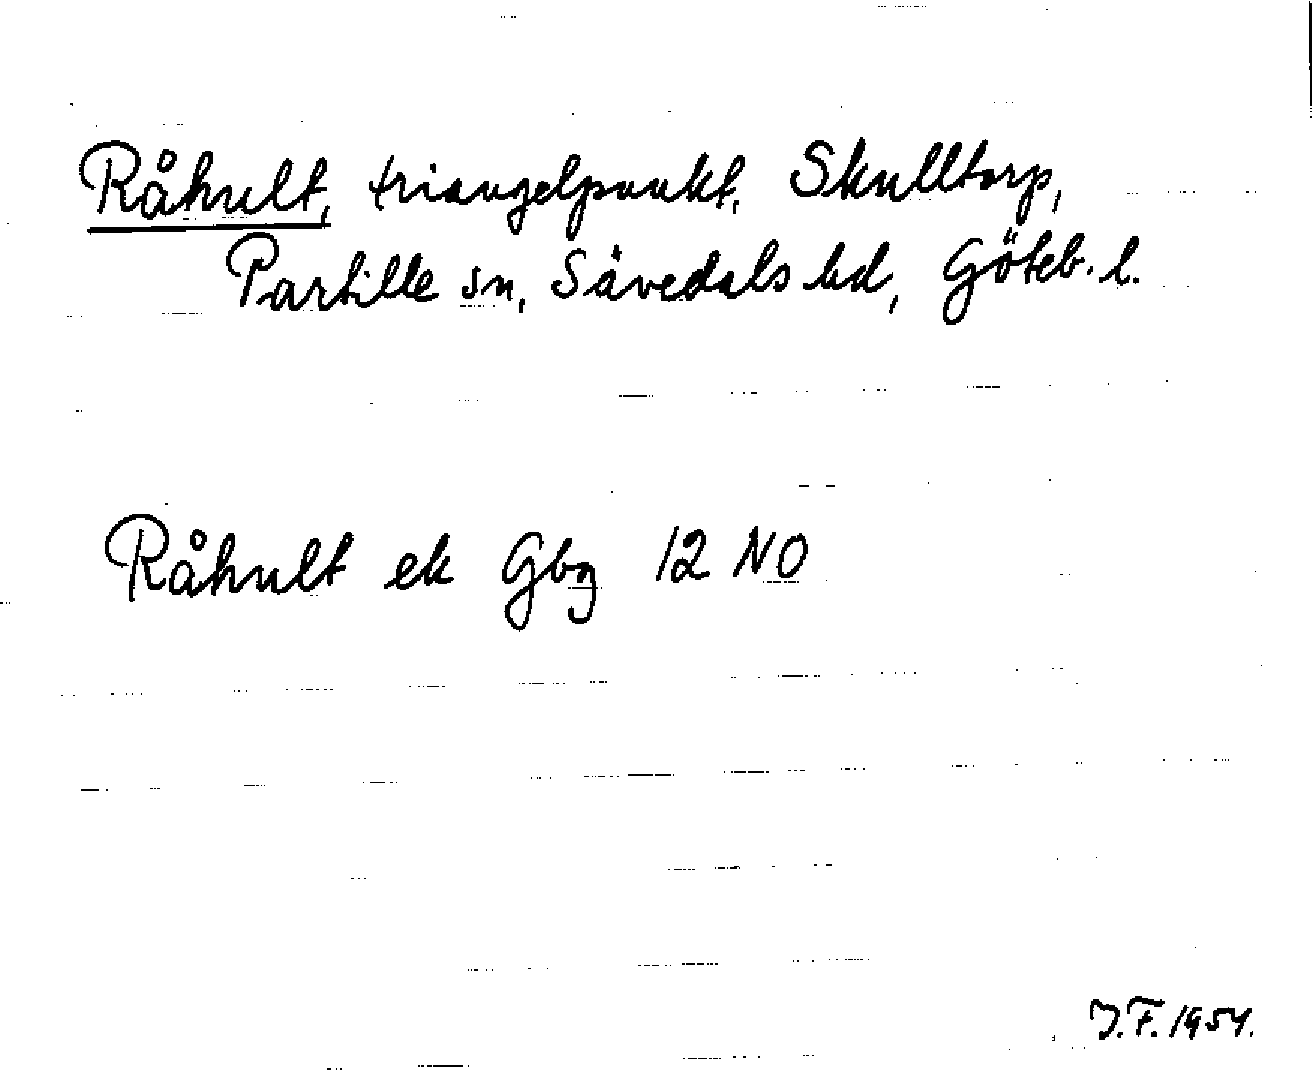 Råhult, triangelpunkt, Skulltorp,
Partille sn, Sävedals hd, Göteb. l.
Råhult ek Gbg 12 NO
J.F. 1954.